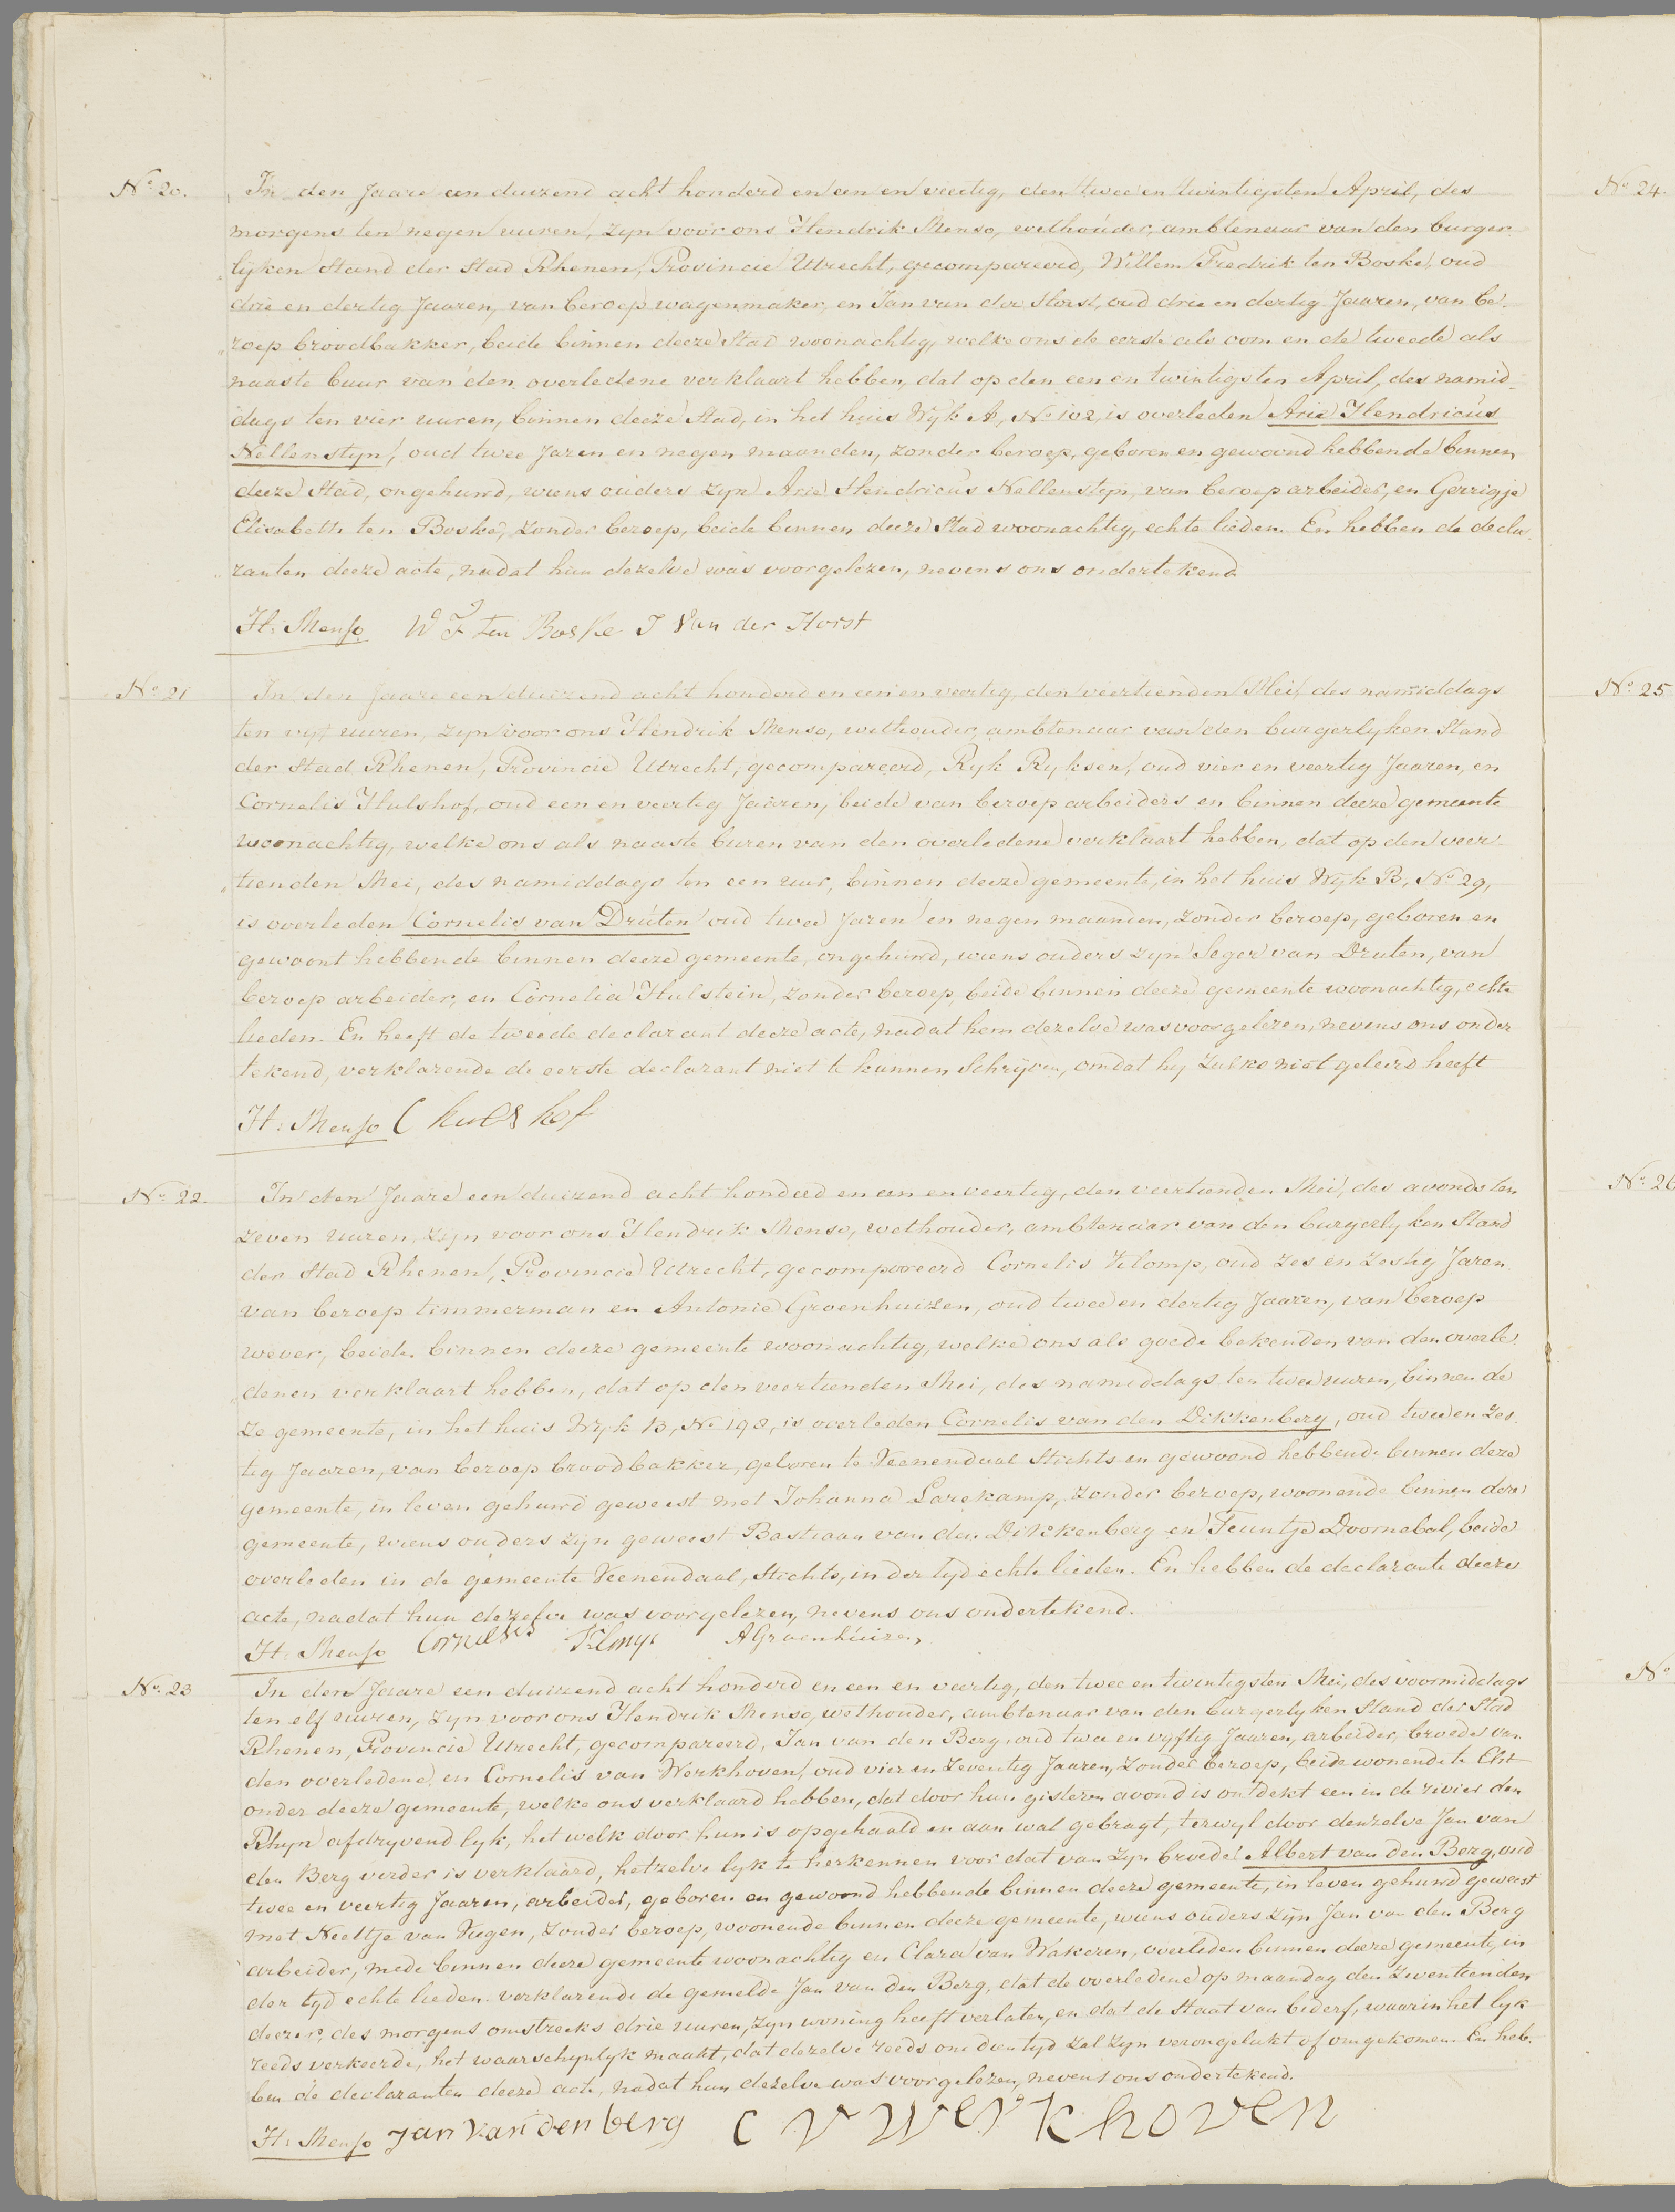 No. 20.
In den Jaare een duizend acht honderd en een en veertig, den twee en twintigsten April, des
morgens ten negen uuren, zyn voor ons Hendrik Menso, wethouder, ambtenaar van den burger
lyken Stand der Stad Rhenen, Provincie Utrecht, gecompareerd, Willem Fredrik ten Boske, oud
drie en dertig Jaaren, van beroep wagenmaker, en Jan van der Horst, oud drie en dertig Jaaren, van be-
roep broodbakker, beide binnen deeze Stad woonachtig, welke ons de eerste als oom en de tweede als
naaste buur van den overledene verklaart hebben, dat op den een en twintigsten April, des namid-
dags ten vier uuren, binnen deeze Stad, in het huis Wyk A, No 102, is overleden Arie Hendricus
Nellenstyn, oud twee Jaren en negen maanden, zonder beroep, geboren en gewoond hebbende binnen
deeze Stad, ongehuwd, wiens ouders zyn Arie Hendricus Nellenstyn, van beroep arbeider, en Gerrigje
Elisabeth ten Boske, zonder beroep, beide binnen deeze Stad woonachtig, echte lieden. En hebben de decla-
ranten deeze acte, nadat hun dezelve was voorgelezen, nevens ons ondertekend
H: Menso W F ten Boske J Van der Horst
No. 21
In den Jaare een duizend acht honderd en een en veertig, den veertienden Mei, des namiddags
ten vyf uuren, zyn voor ons Hendrik Menso, wethouder, ambtenaar van den burgerlyken Stand
der Stad Rhenen, Provincie Utrecht, gecompareerd, Ryk Ryksen, oud vier en veertig Jaaren, en
Cornelis Hulshof, oud een en veertig Jaaren, beide van beroep arbeiders en binnen deeze gemeente
woonachtig, welke ons als naaste buren van den overledene verklaart hebben, dat op den veer-
tienden Mei, des namiddags ten een uur, binnen deeze gemeente, in het huis Wyk B, No 29,
is overleden Cornelis van Druten oud twee Jaren en negen maanden, zonder beroep, geboren en
gewoont hebbende binnen deeze gemeente, ongehuwd, wiens ouders zyn Seger van Druten, van
beroep arbeider, en Cornelia Hulstein, zonder beroep, beide binnen deeze gemeente woonachtig, echte
lieden. En heeft de tweede declarant deeze acte, nadat hem dezelve was voorgelezen, nevens ons onder
tekend, verklarende de eerste declarant niet te kunnen Schrijven, omdat hy zulks niet geleerd heeft
H: Menso C hulshof
No. 22.
In den Jaare een duizend acht honderd en een en veertig, den veertienden Mei, des avonds ten
zeven uuren, zyn voor ons Hendrik Menso, wethouder, ambtenaar van den burgerlyken Stand
der Stad Rhenen, Provincie Utrecht, gecompareerd Cornelis Klomp, oud zes en zestig Jaren
van beroep timmerman en Antonie Groenhuizen, oud twee en dertig Jaaren, van beroep
wever, beide binnen deeze gemeente woonachtig, welke ons als goede bekenden van den overle
denen verklaart hebben, dat op den veertienden Mei, des namiddags ten twee uuren, binnen de
ze gemeente, in het huis Wyk B, No 198, is overleden Cornelis van den Dikkenberg, oud twee en zes
tig Jaaren, van beroep broodbakker, geboren te Veenendaal Stichts en gewoond hebbende binnen deze
gemeente, in leven gehuwd geweest met Johanna Larekamp, zonder beroep, woonende binnen deze
gemeente, wiens ouders zyn geweest Bastiaan van den Dikkenberg en Teuntje Doornebal, beide
overleden in de gemeente Veenendaal, Stichts, in der tyd echte lieden. En hebben de declarante deeze
acte, nadat hun dezelve was voorgelezen, nevens ons ondertekend.
H: Menso Cornelis Klomp A Groenhuizen
No. 23
In den Jaare een duizend acht honderd en een en veertig, den twee en twintigsten Mei, des voormiddags
ten elf uuren, zyn voor ons Hendrik Menso, wethouder, ambtenaar van den burgerlyken Stand der Stad
Rhenen, Provincie Utrecht, gecompareerd, Jan van den Berg, oud twee en vyftig Jaaren, arbeider, broeder van
den overledene, en Cornelis van Werkhoven, oud vier en zeventig Jaaren, zonder beroep, beide wonende te Elst
onder deeze gemeente, welke ons verklaard hebben, dat door hun gisteren avond is ontdekt een in de rivier den
Rhyn afdryvend lyk, het welk door hun is opgehaald en aan wal gebragt, terwyl door denzelve Jan van
den Berg verder is verklaard, hetzelve lyk te herkennen voor dat van zyn broeder Albert van den Berg, oud
twee en veertig Jaaren, arbeider, geboren en gewoond hebbende binnen deeze gemeente, in leven gehuwd geweest
met Neeltje van Viegen, zonder beroep, woonende binnen deeze gemeente, wiens ouders zyn Jan van den Berg
arbeider, mede binnen deeze gemeente woonachtig en Clara van Wakeren, overleden binnen deeze gemeente, in
der tyd echte lieden. verklarende de gemelde Jan van den Berg, dat de overledene op maandag den zeventienden
deezer, des morgens omstreeks drie uuren, zyn woning heeft verlaten, en dat de Staat van bederf, waarin het lyk
reeds verkeerde, het waarschynlyk maakt, dat dezelve reeds om dien tyd zal zyn verongelukt of omgekomen. En heb-
ben de declaranten deeze acte, nadat hun dezelve was voorgelezen, nevens ons ondertekend.
H: Menso Jan van den berg C v Werkhoven
No 24.
No. 25
No. 26
No